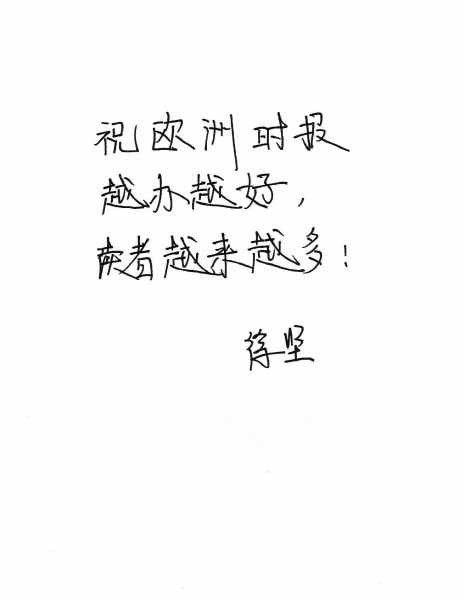 祝欧洲时报
越办越好，
读者越来越多！
徐坚